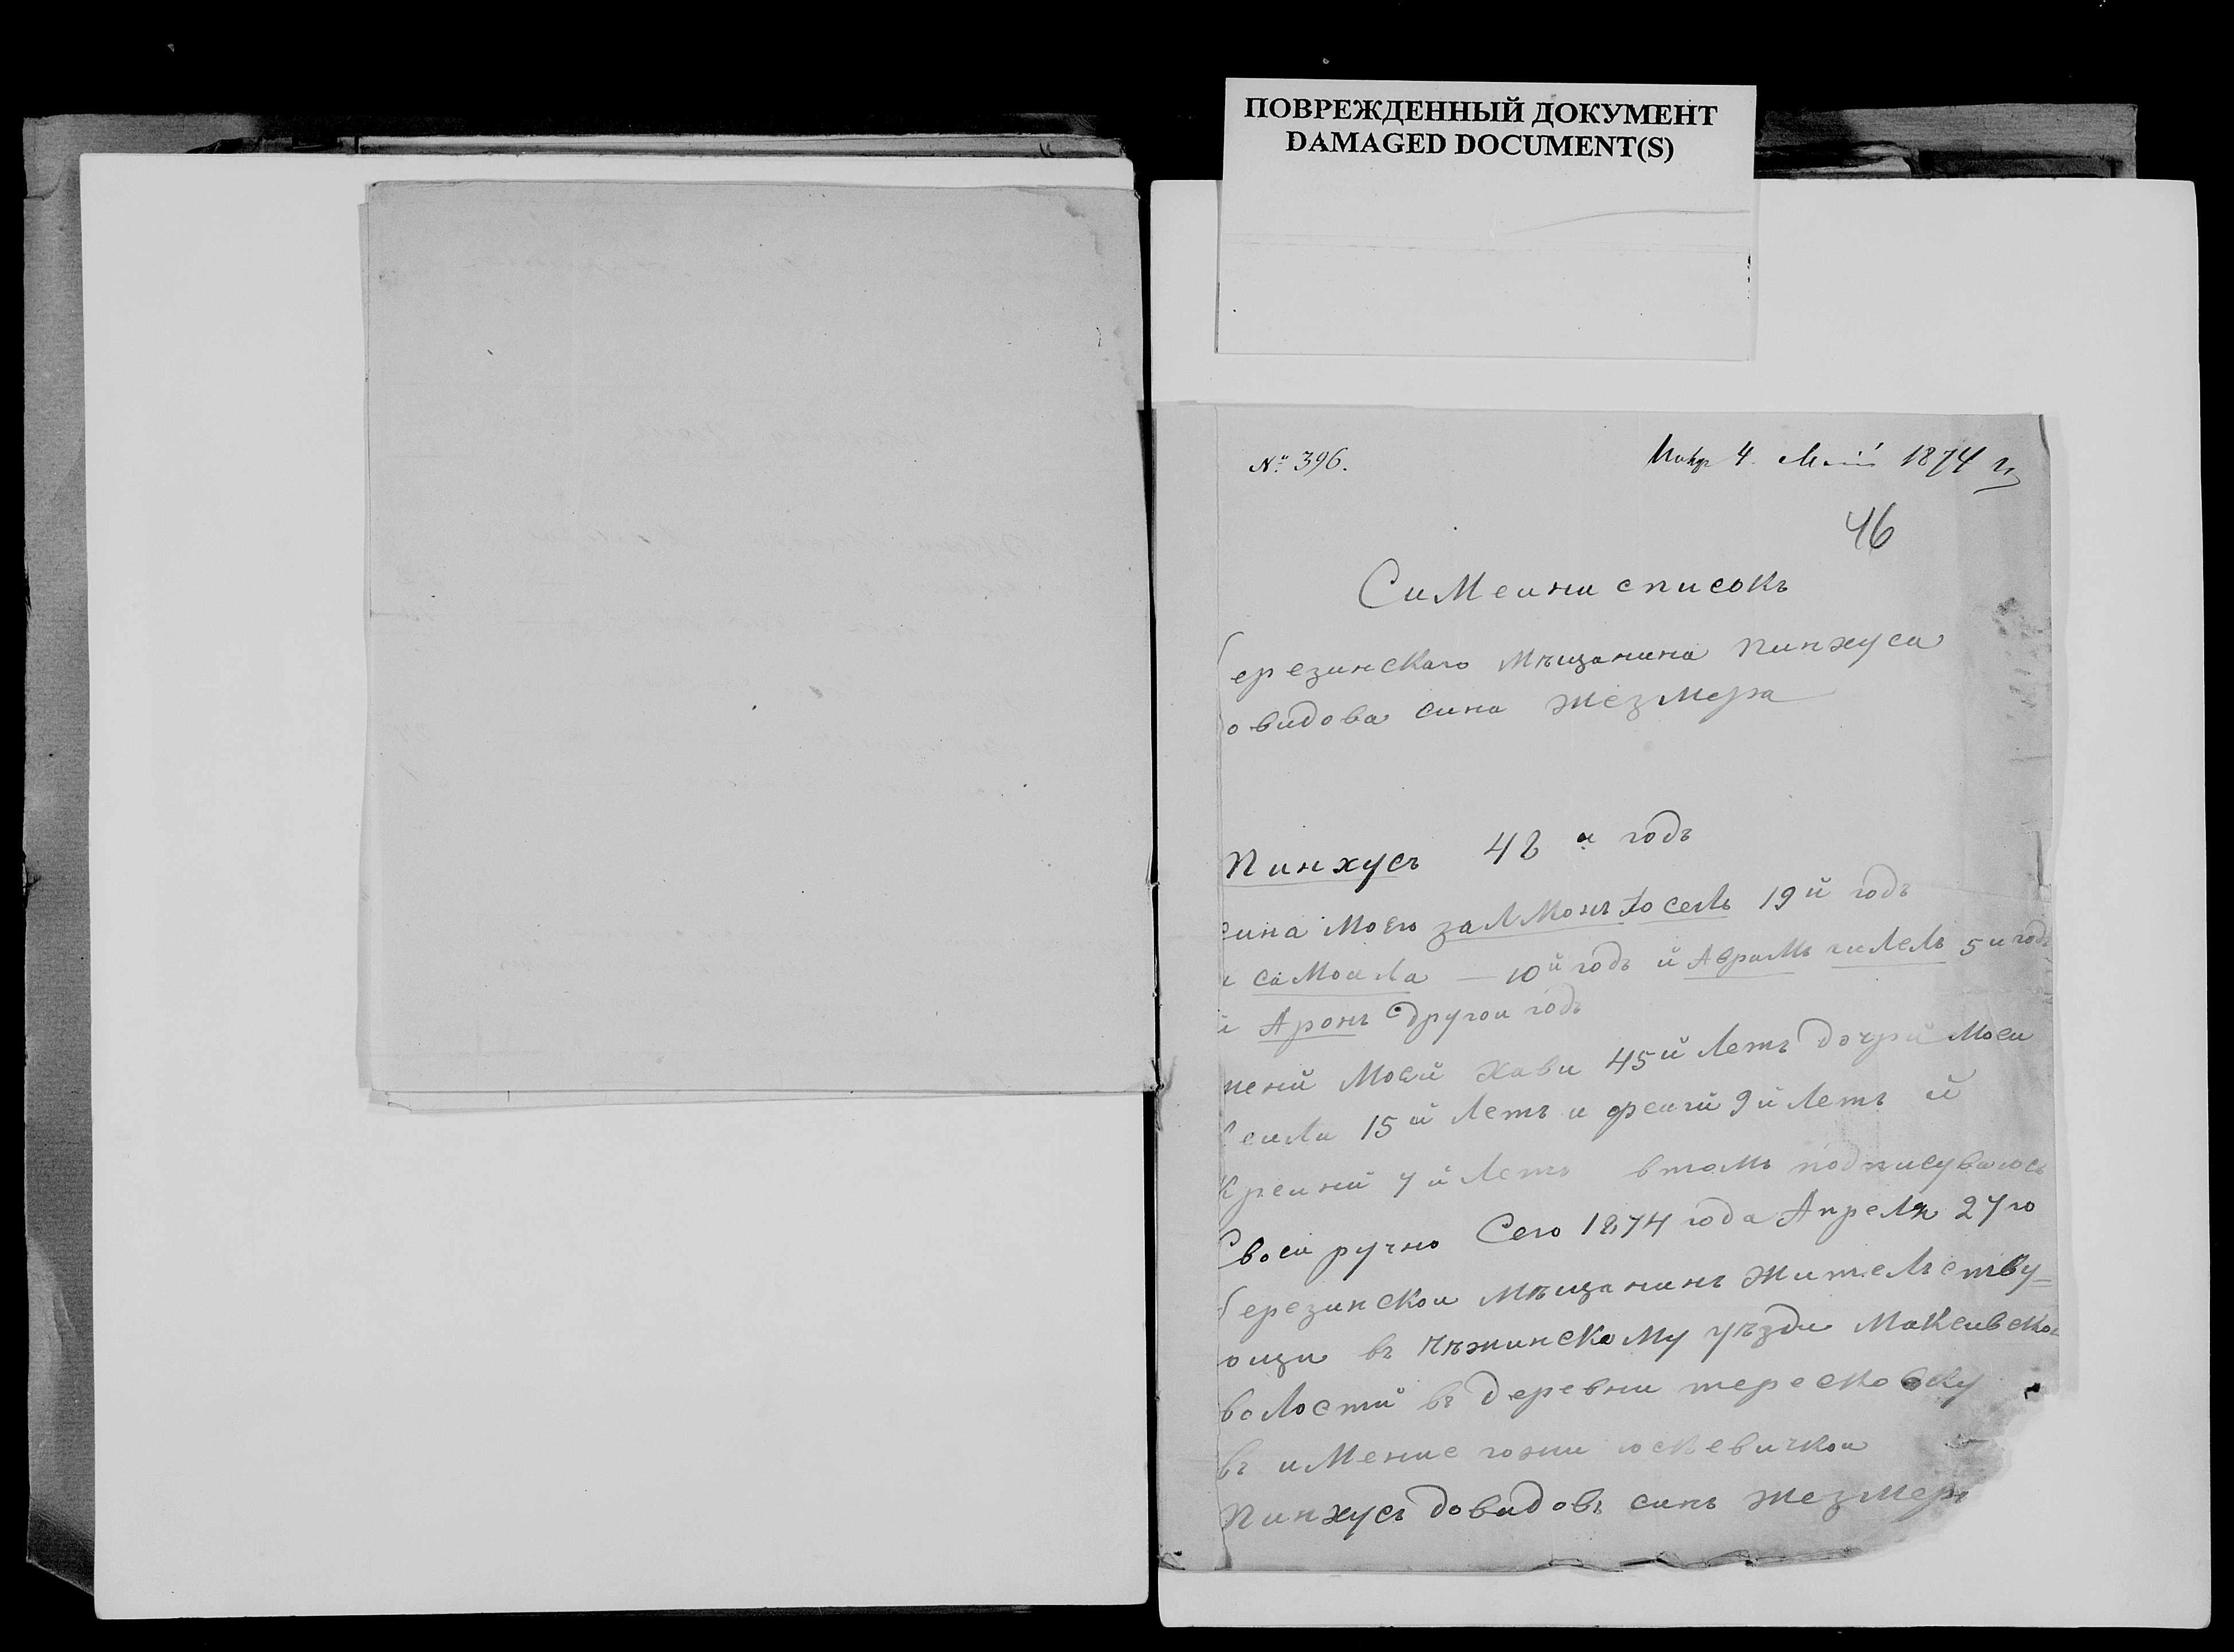 ПОВРЕЖДЕННЫЙ ДОКУМЕНТ
DAMAGED DOCUMENT(S)
№ 396.
4. Маія 1874 г
46
СиМеини списокъ
ерезинскаго Мѣщанина Пинхуса
овидова сина Жезмера
Пинхусъ 48 и годъ
сина Моего заЛМонъ Іосель 19 й годъ
и саМоила — 10 й годъ й АвраМъ гилель 5 и годъ
й Аронъ другои годъ
Моей Хави 45 й Летъ дочрй Моеи
15 й Летъ и фейгй 9 й Летъ й
Креинй 7 й Летъ втомъ подписуваюсъ
Своеи ручно Сего 1874 года АпреЛя 27 го
березинскои Мѣщанинъ ЖитеЛъству=
ющи въ Нѣжинскому уѣзди Макеивско=
воЛостй въ деревни терескоВку
въ иМение юскевичкои
Пинхусъ довидовъ синъ Жезмер